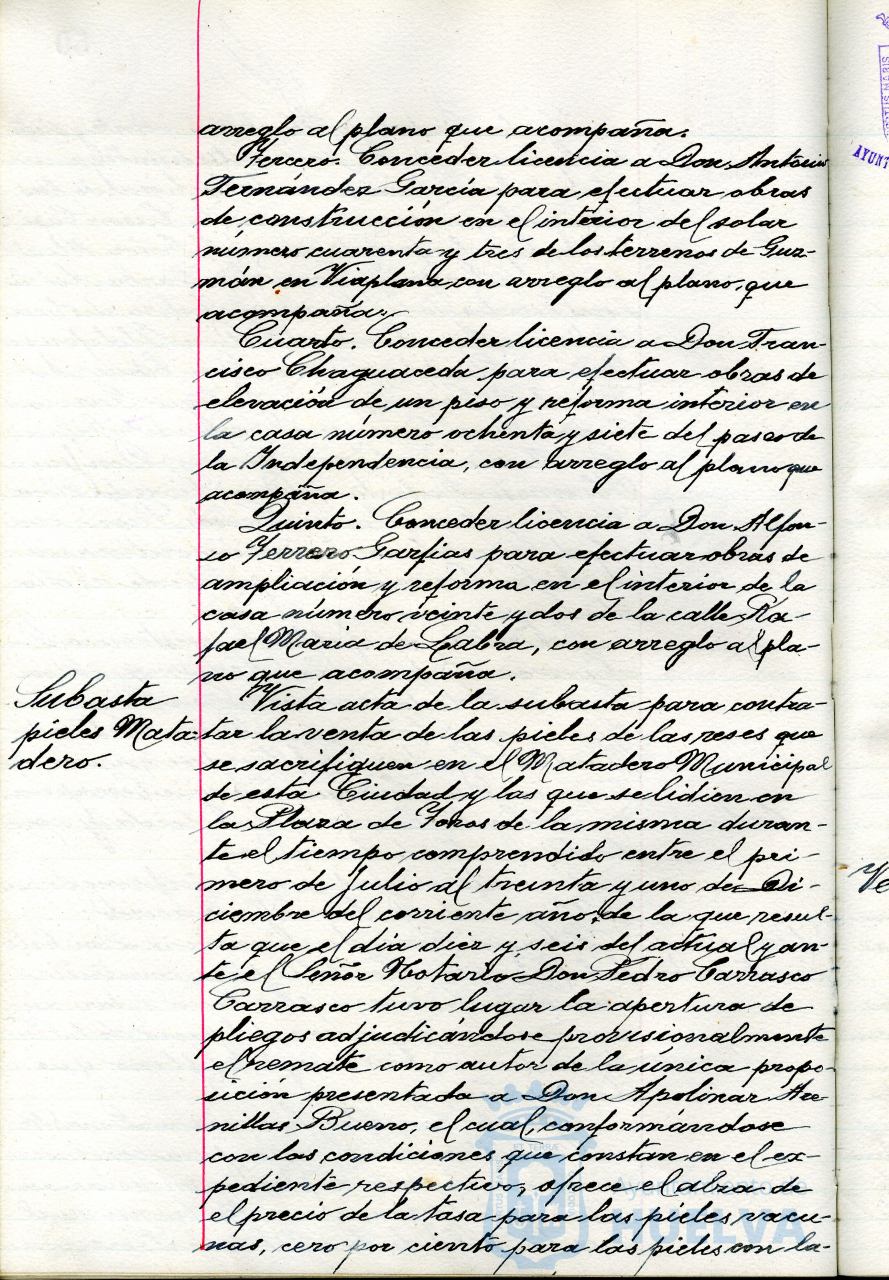 arreglo al plano que acompaña.
Tercero. Conceder licencia a Don Antonio
Fernández García para efectuar obras
de construcción en el interior del solar
número cuarenta y tres de los terrenos de Guz-
mán en Viaplana con arreglo al plano, que
acompaña.
Cuarto. Conceder licencia a Don Fran-
cisco Chaguaceda para efectuar obras de
elevación de un piso y reforma interior en
la casa número ochenta y siete del paseo de
la Independencia, con arreglo al plano que
acompaña.
Quinto. Conceder licencia a Don Alfon-
so Ferrero Garfias para efectuar obras de
ampliación y reforma en el interior de la
casa número veinte y dos de la calle Ra-
fael Maria de Labra, con arreglo al pla-
no que acompaña.
Subasta
pieles Mata-
dero.
Vista acta de la subasta para contra-
tar la venta de las pieles de las reses que
se sacrifiquen en el Matadero Municipal
de esta Ciudad y las que se lidien en
la Plaza de Toros de la misma duran-
te el tiempo comprendido entre el pri-
mero de Julio al treinta y uno de Di-
ciembre del corriente año, de la que resul-
ta que el día diez y seis del actual y an-
te el Señor Notario Don Pedro Carrasco
Carrasco tuvo lugar la apertura de
pliegos adjudicándose provisionalmente
el remate como autor de la única propo-
sición presentada a Don Apolinar Are-
nillas Bueno, el cual, conformándose
con las condiciones que constan en el ex-
pediente respectivo, ofrece el alza de
el precio de la tasa para las pieles vacu-
nas, cero por ciento para las pieles con la-
Ayuntamiento de
HUELVA
AYUNT